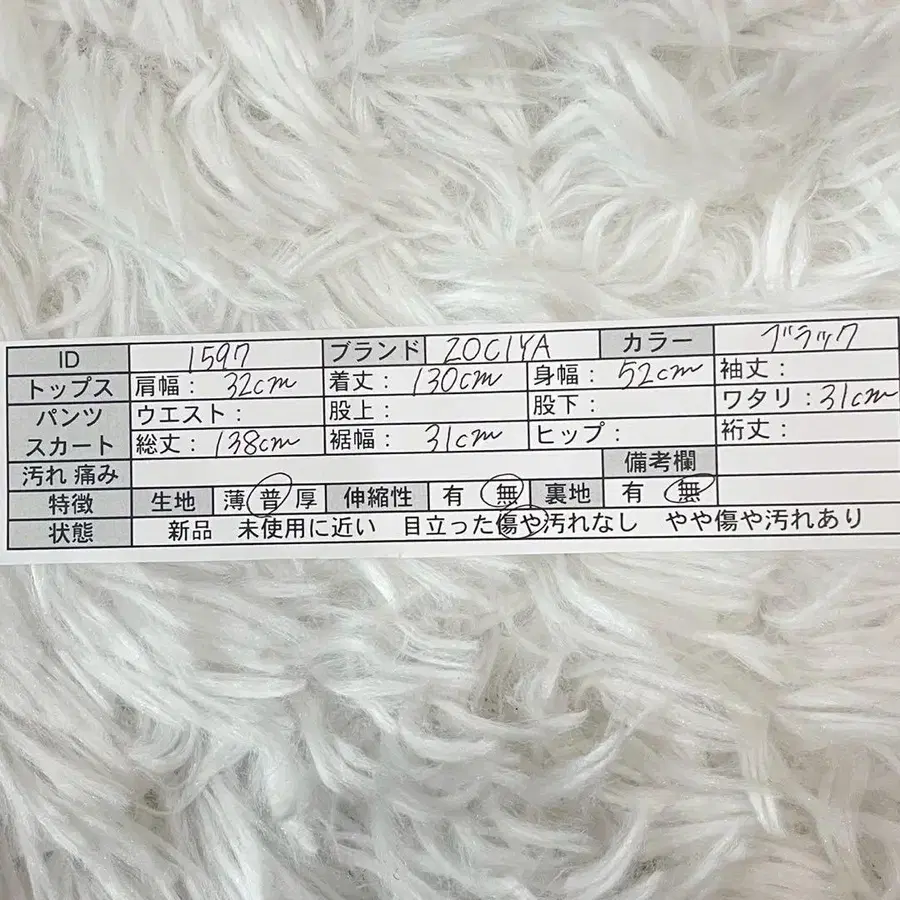 ID 1597 ブランド ZOCIYA カラー ブラック
トップス 肩幅: 32cm 着丈: 130cm 身幅: 52cm 袖丈:
パンツ ウエスト: 股上: 股下: ワタリ: 31cm
スカート 総丈: 138cm 裾幅: 31cm ヒップ: 裄丈:
汚れ 痛み 備考欄
特徴 生地 薄 普 厚 伸縮性 有 無 裏地 有 無
状態 新品 未使用に近い 目立った傷や汚れなし やや傷や汚れあり